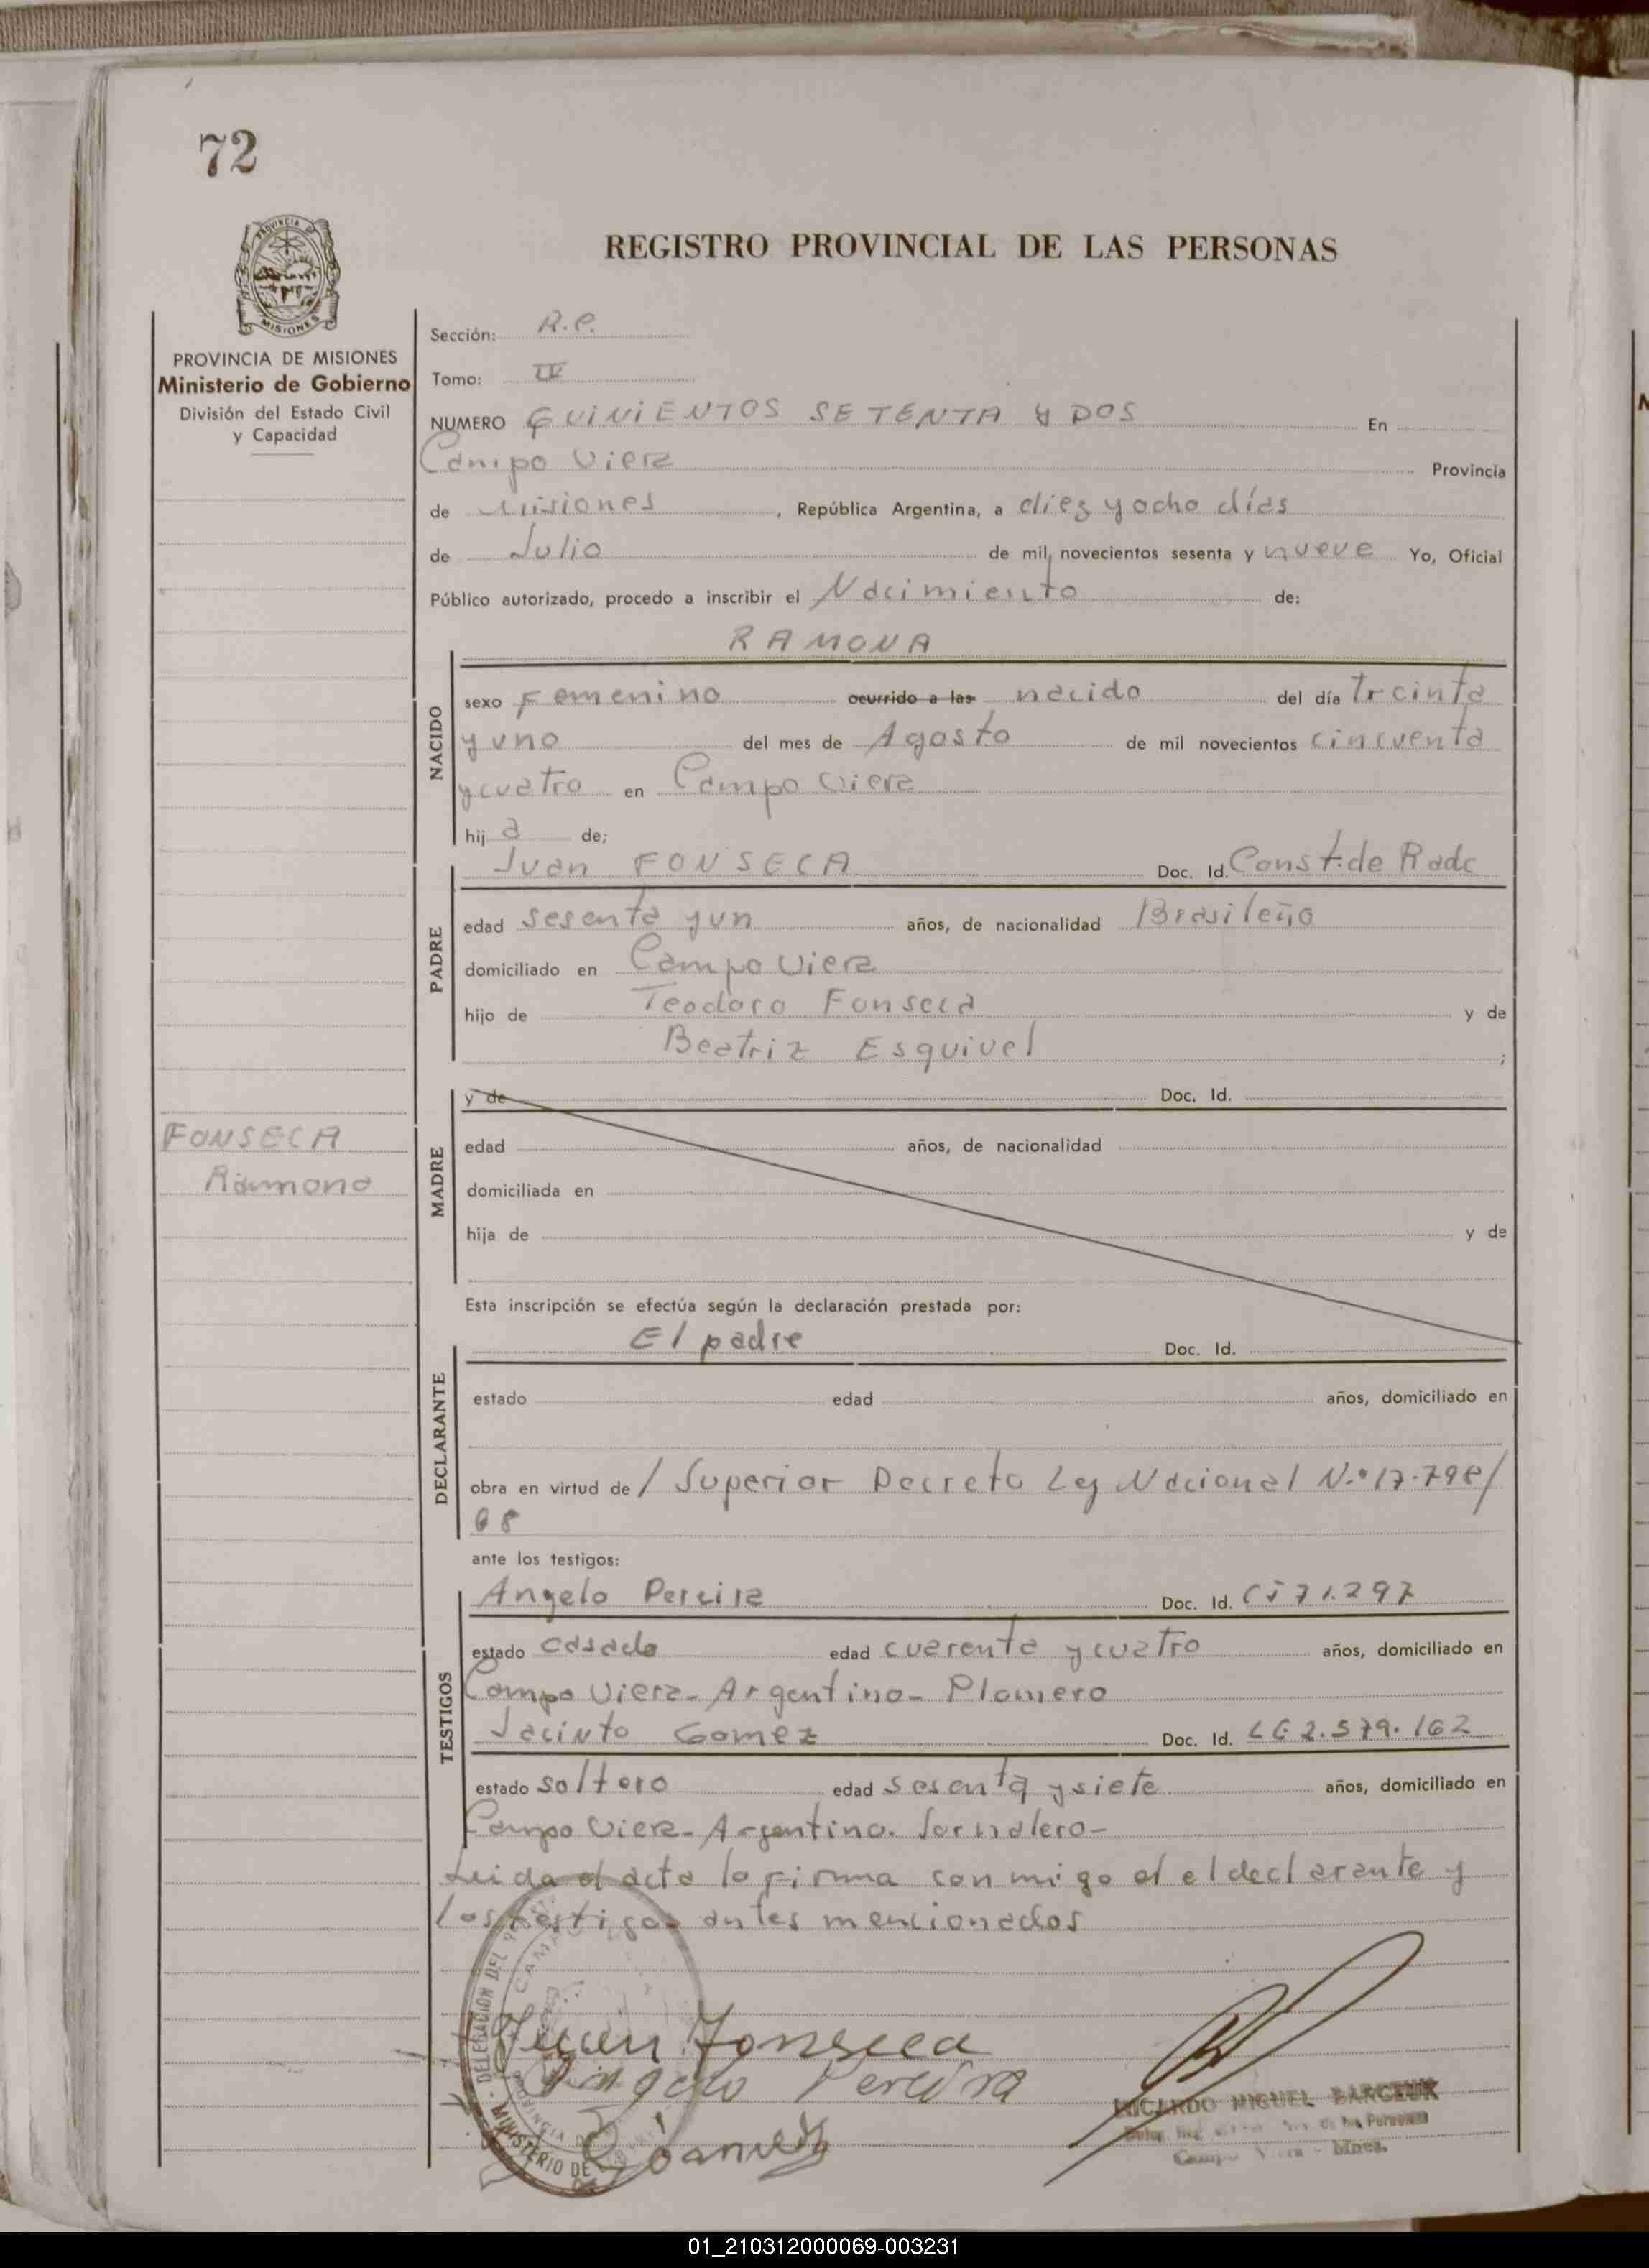 72
REGISTRO PROVINCIAL DE LAS PERSONAS
PROVINCIA DE
MISIONES
PROVINCIA DE MISIONES
Ministerio de Gobierno
División del Estado Civil
y Capacidad
Sección: R.P.
Tomo: IV
NUMERO QUINIENTOS SETENTA Y DOS En
Campo Viera Provincia
de Misiones, República Argentina, a diez y ocho días
de Julio de mil novecientos sesenta y nueve Yo, Oficial
Público autorizado, procedo a inscribir el Nacimiento de:
RAMONA
NACIDO
sexo Femenino ocurrido a las nacido del día treinta
y uno del mes de Agosto de mil novecientos cincuenta
y cuatro en Campo Viera
hij a de;
PADRE
Juan FONSECA Doc. Id. Const. de Radc
edad sesenta y un años, de nacionalidad Brasileña
domiciliado en Campo Viera
hijo de Teodoro Fonseca y de
Beatriz Esquivel ;
FONSECA
Ramona
MADRE
y de Doc. Id.
edad años, de nacionalidad
domiciliada en
hija de y de
Esta inscripción se efectúa según la declaración prestada por:
DECLARANTE
El padre Doc. Id.
estado edad años, domiciliado en
obra en virtud de / Superior Decreto Ley Nacional N.º 17.798/
68
ante los testigos:
TESTIGOS
Angelo Pereira Doc. Id. CI 71.297
estado casado edad cuarenta y cuatro años, domiciliado en
Campo Viera - Argentino - Plomero
Jacinto Gomez Doc. Id. LE 2.579.162
estado soltero edad sesenta y siete años, domiciliado en
Campo Viera - Argentino. Jornalero -
Leida el acta la firma con migo el el declarante y
los testigos antes mencionados
Juan Fonseca
Angelo Pereira
DELEGACION DEL
MINISTERIO DE
RICARDO MIGUEL
Campo Viera - Mnes.
01_210312000069-003231